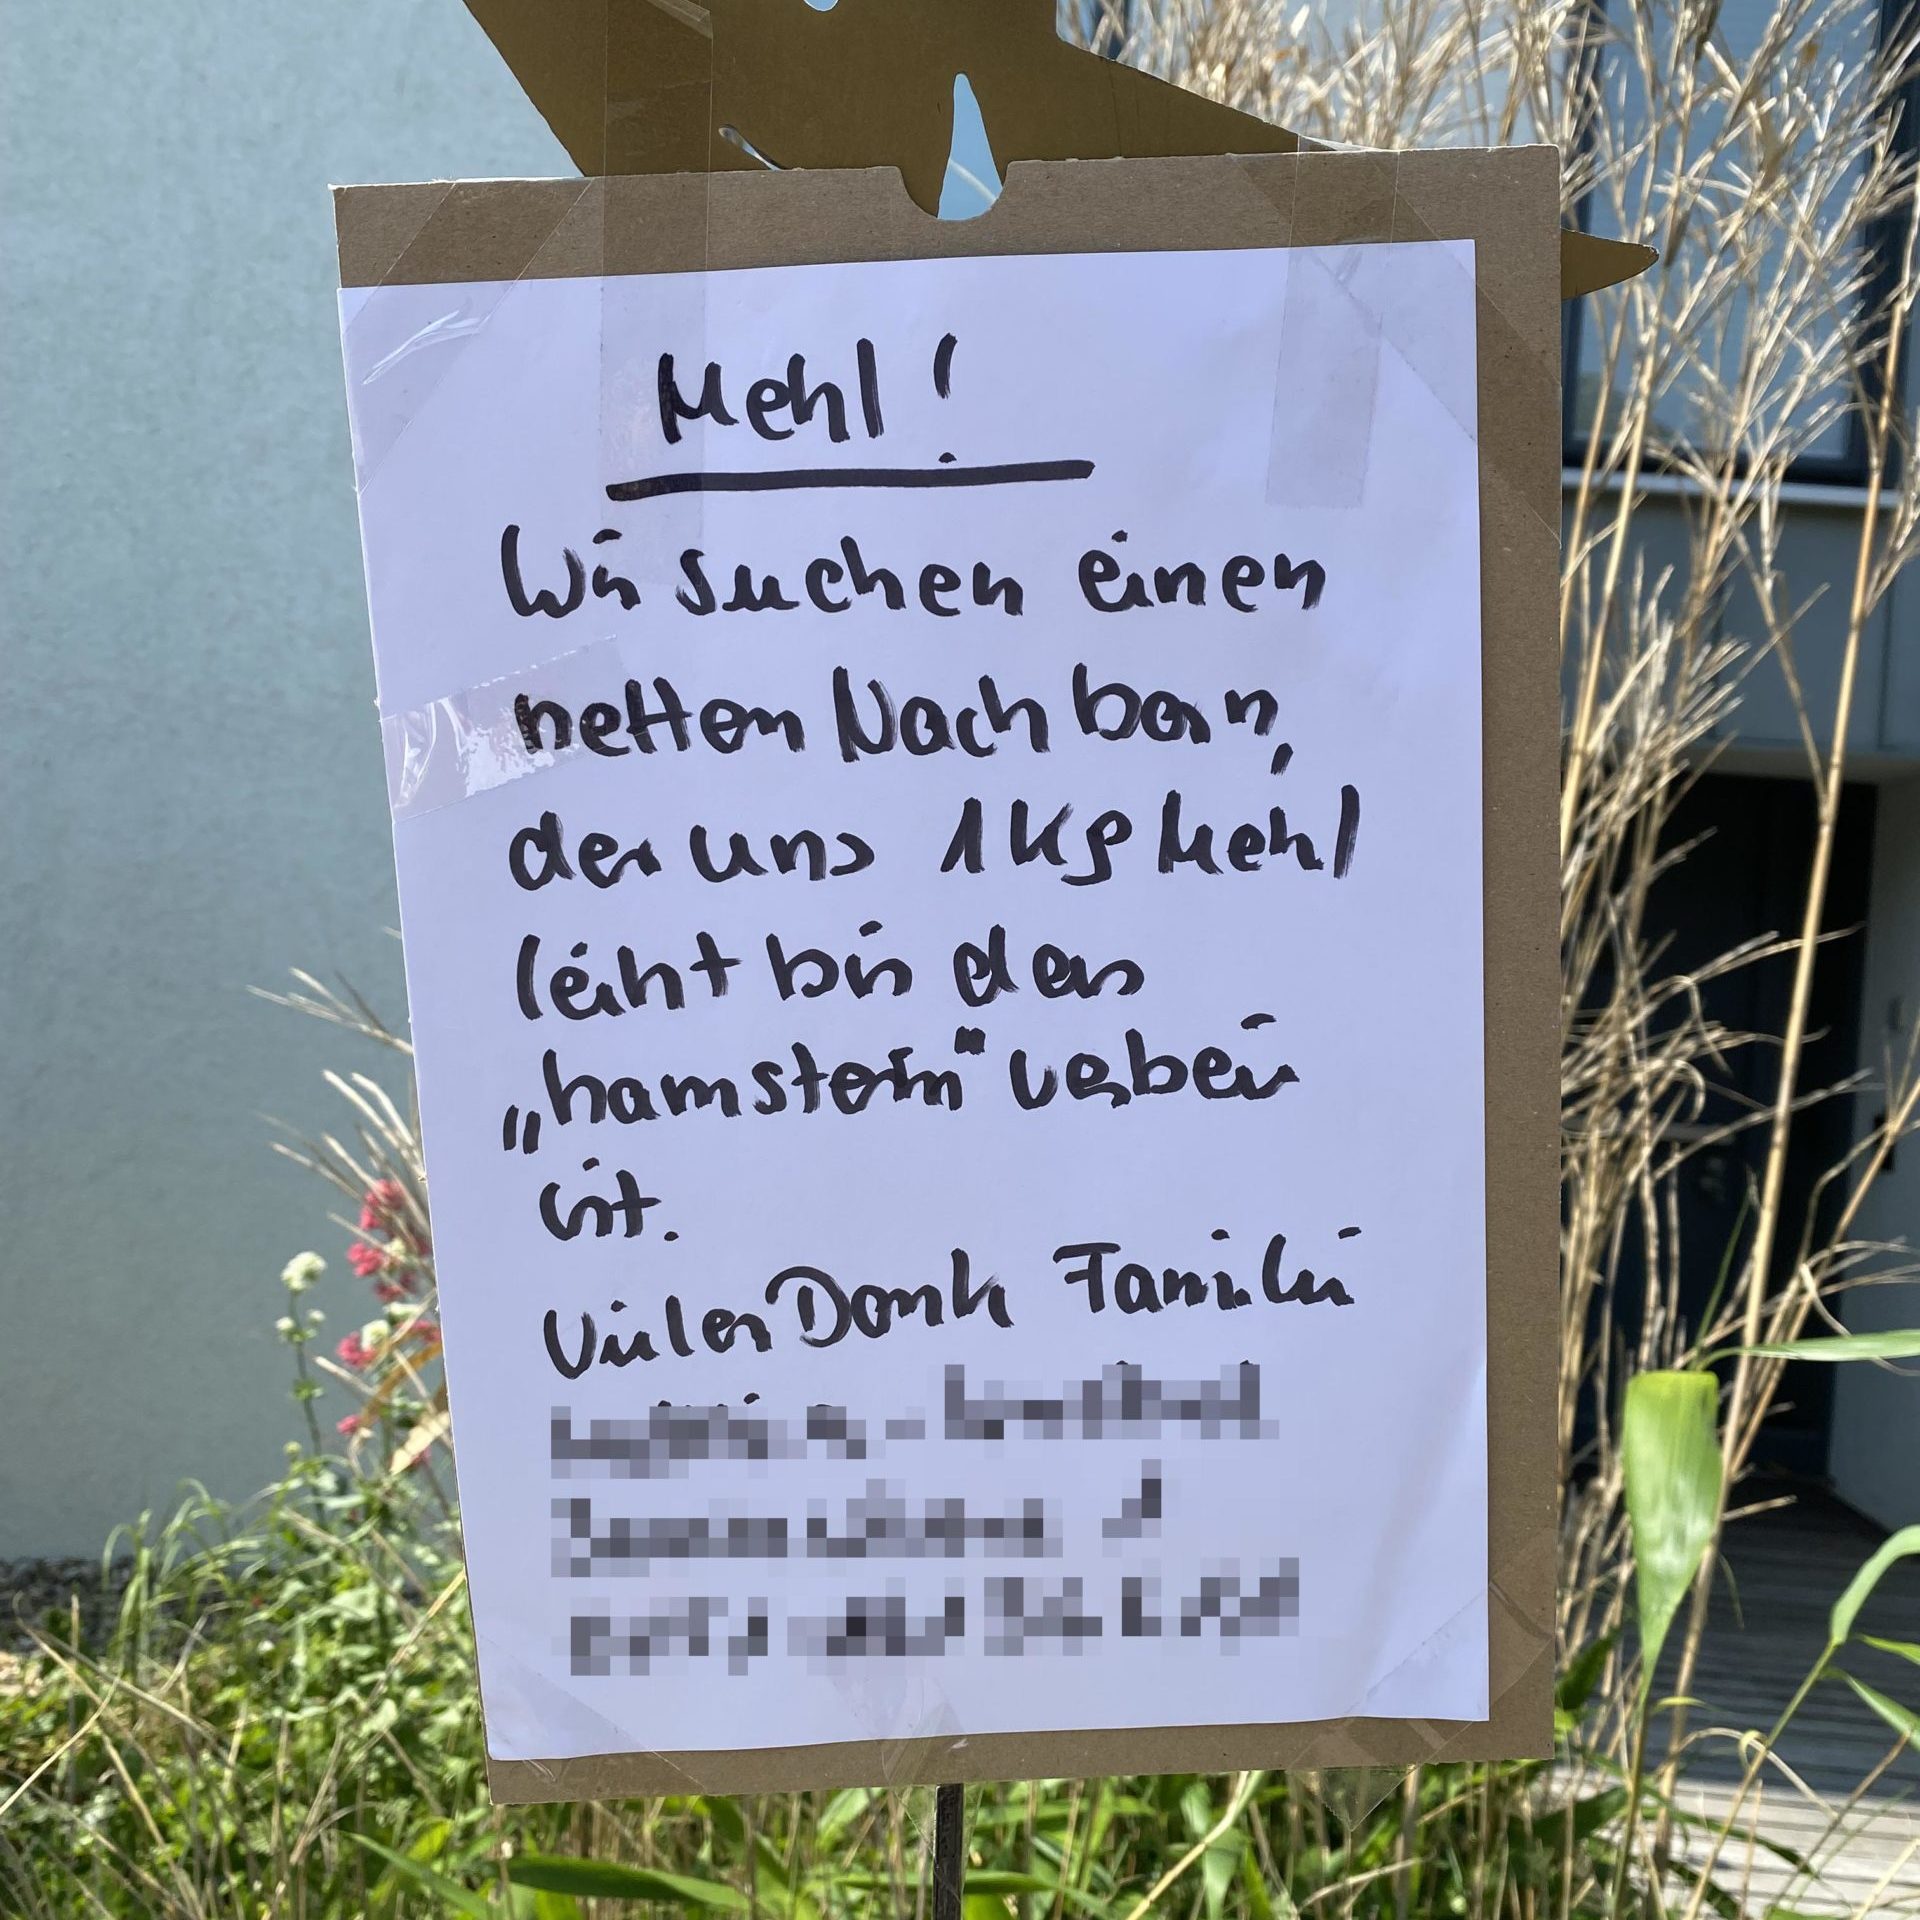 Mehl!
Wir suchen einen
netten Nachbarn,
der uns 1 kg Mehl
leiht bis das
„hamstern“ vorbei
ist.
Vielen Dank Familie